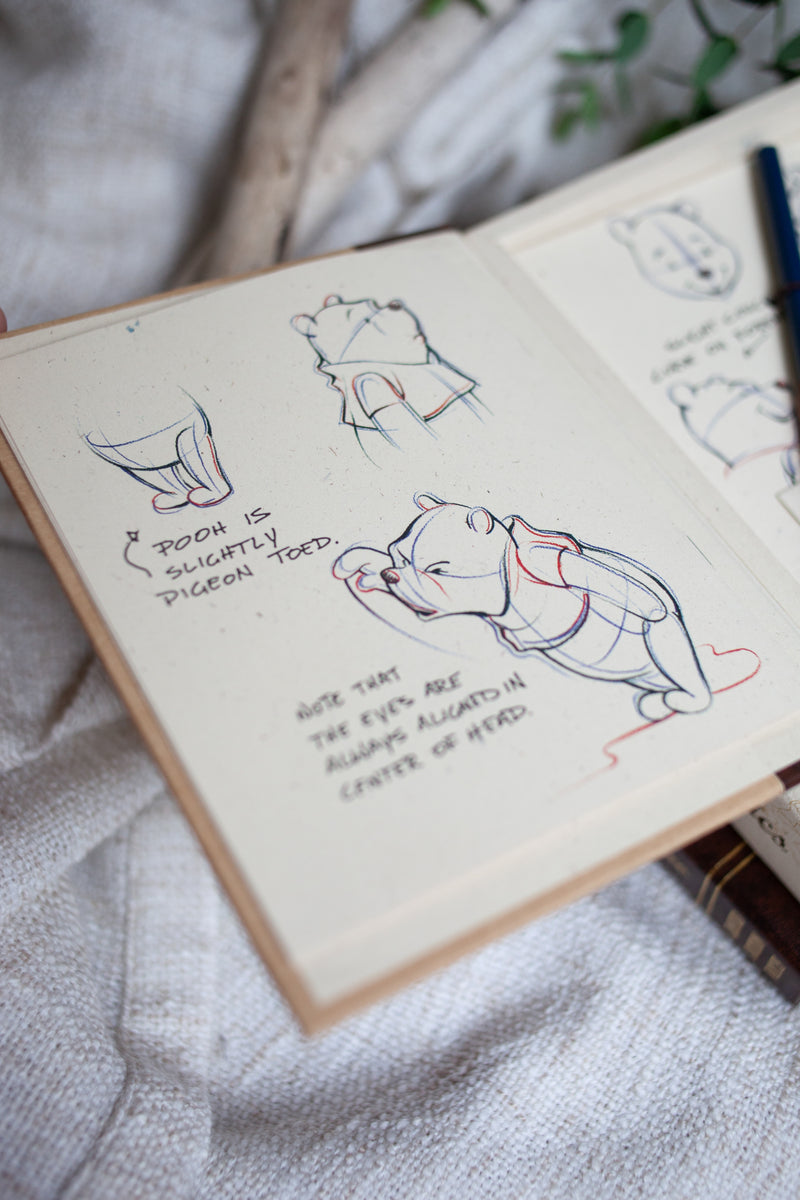 POOH IS
SLIGHTLY
PIGEON TOED.
NOTE THAT
THE EYES ARE
ALWAYS ALIGNED IN
CENTER OF HEAD.